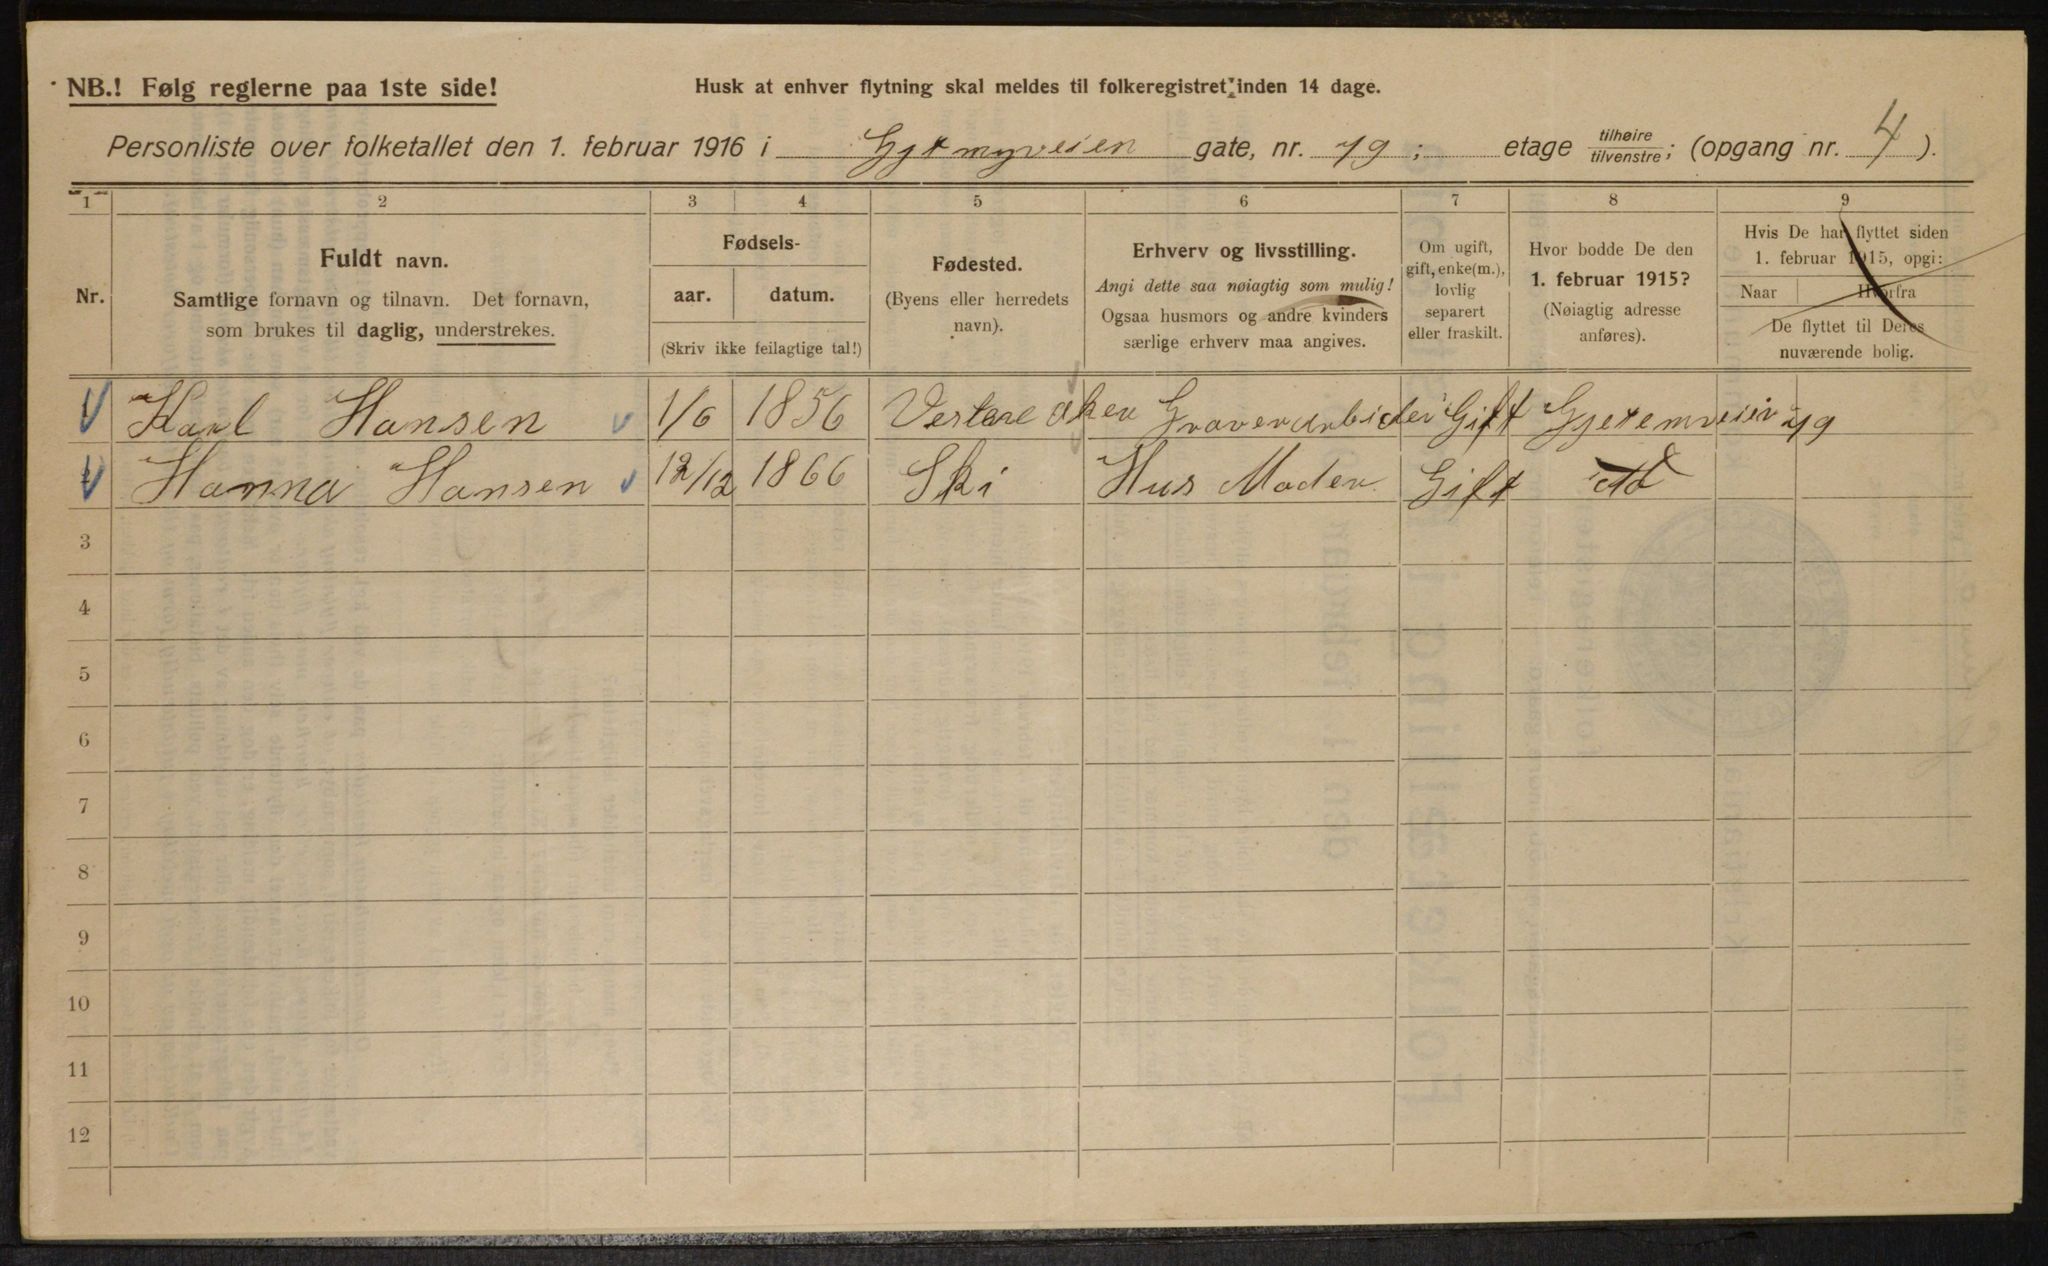 NB.! Følg reglerne paa 1ste side!
Husk at enhver flytning skal meldes til folkeregistret inden 14 dage.
Personliste over folketallet den 1. februar 1916 i Gjetmyrveien gate, nr. 79; etage tilhøire/tilvenstre; (opgang nr. 4).
1 2 3 4 5 6 7 8 9
Nr.
Fuldt navn.
Samtlige fornavn og tilnavn. Det fornavn,
som brukes til daglig, understrekes.
Fødsels-
aar. datum.
(Skriv ikke feilagtige tal!)
Fødested.
(Byens eller herredets
navn).
Erhverv og livsstilling.
Angi dette saa nøiagtig som mulig!
Ogsaa husmors og andre kvinders
særlige erhverv maa angives.
Om ugift,
gift, enke(m.),
lovlig
separert
eller fraskilt.
Hvor bodde De den
1. februar 1915?
(Nøiagtig adresse
anføres).
Hvis De har flyttet siden
1. februar 1915, opgi:
Naar Hvorfra
De flyttet til Deres
nuværende bolig.
Karl Hansen 1/6 1856 Vestere aker Graverarbider Gift Gjetemveien 79
Hanna Hansen 12/12 1866 Ski Hus Moder Gift
3
4
5
6
7
8
9
10
11
12